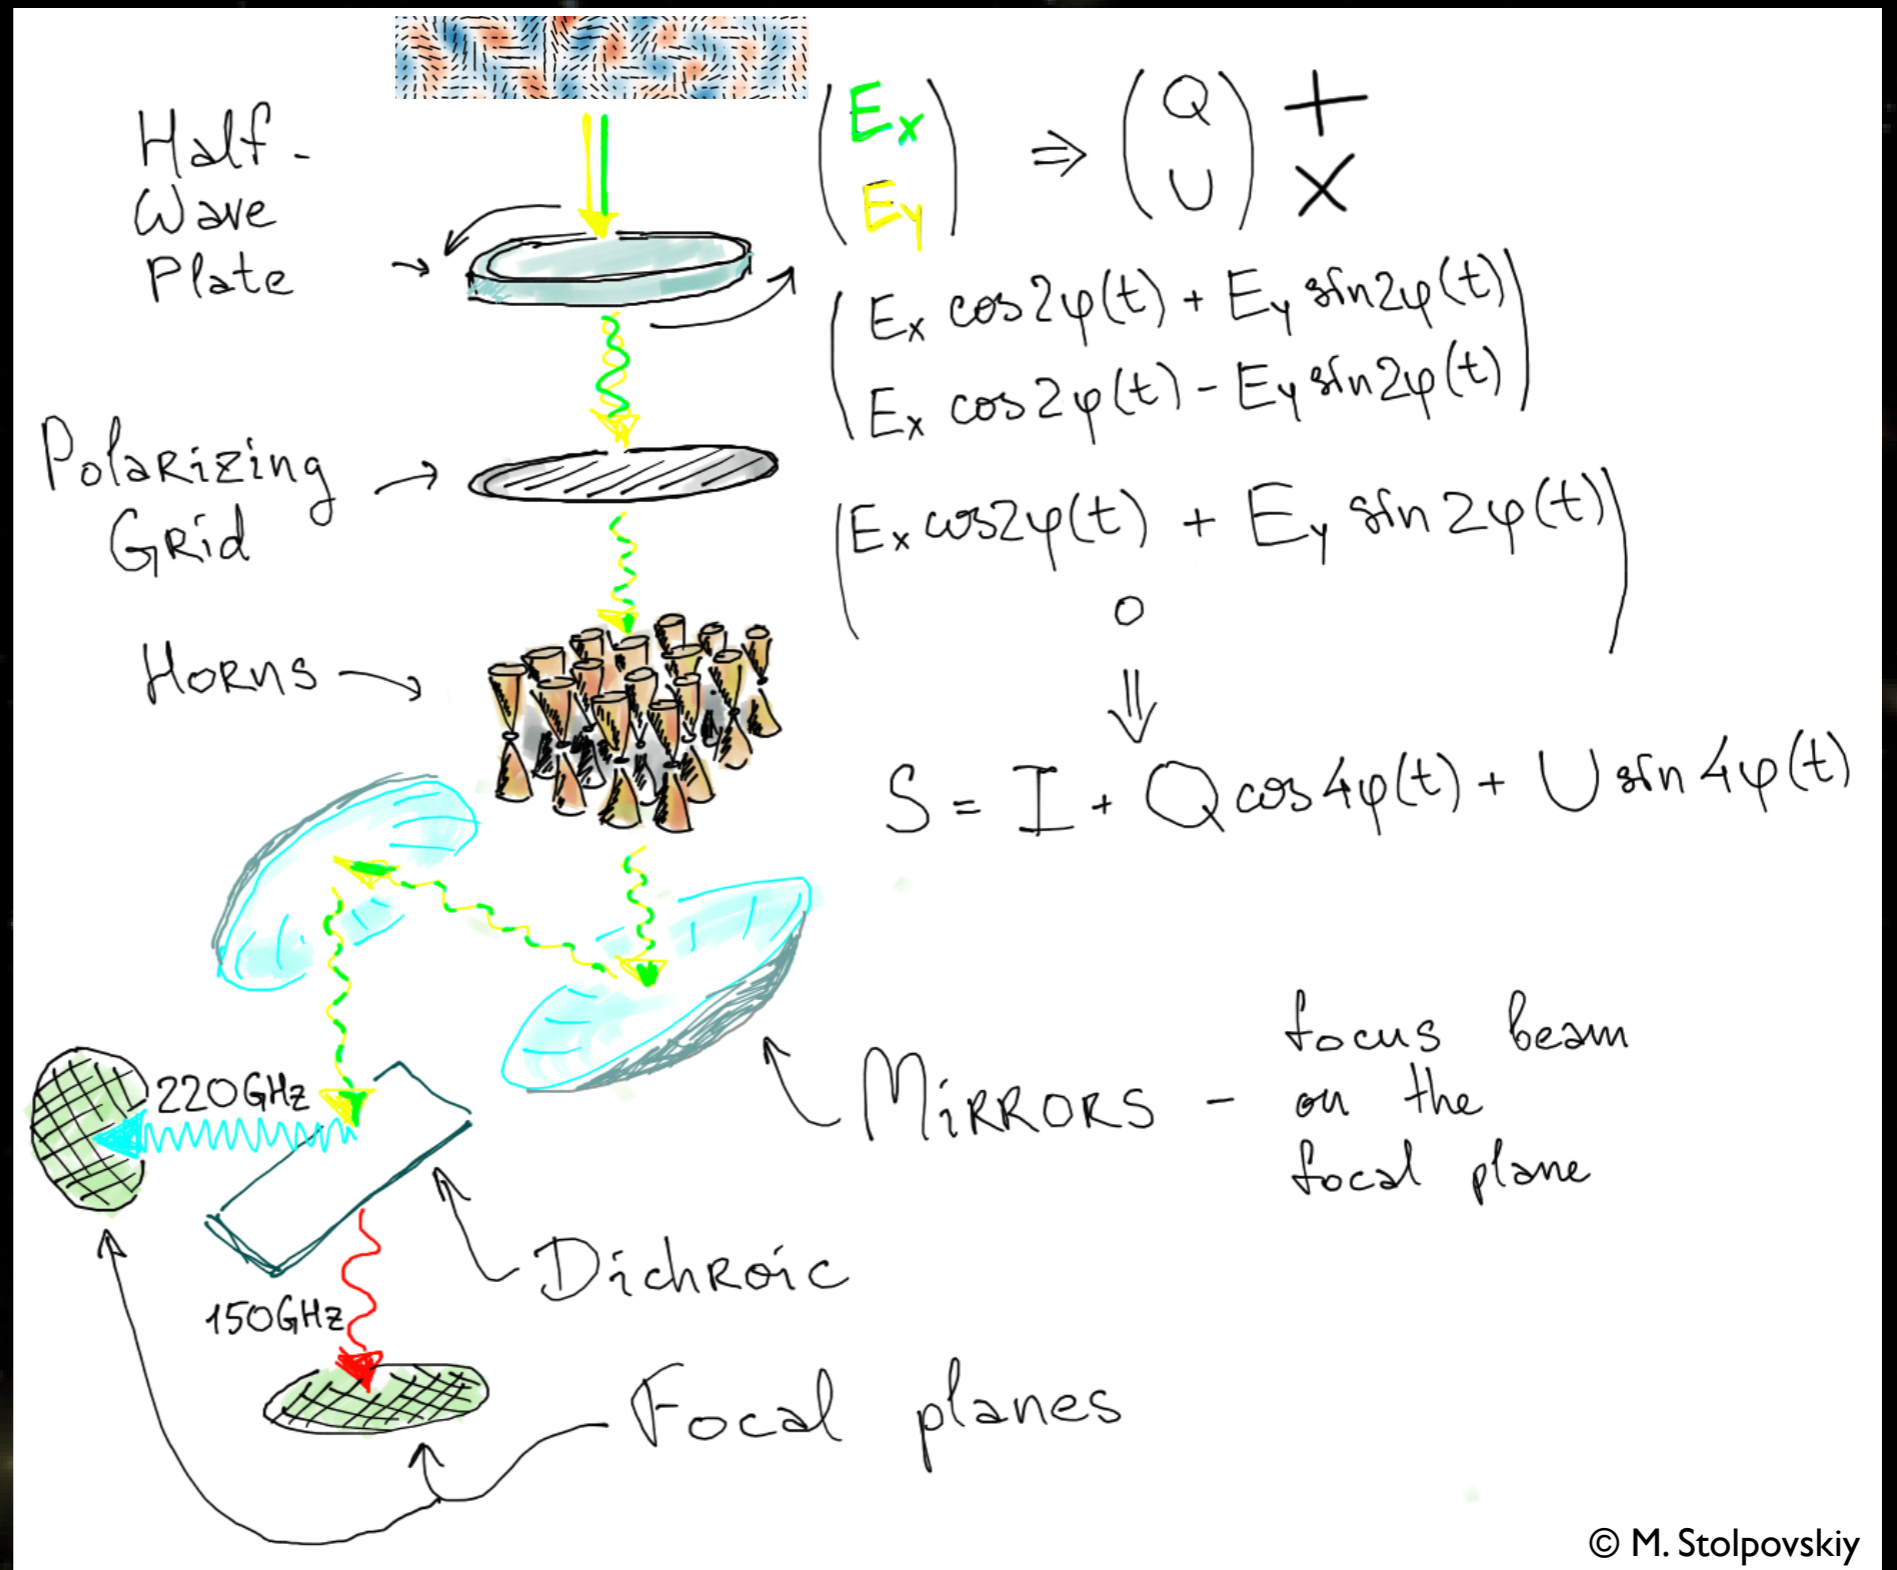 Half-
Wave
Plate
Ex
Ey
⇒
Q +
U ×
Ex cos2φ(t) + Ey sin2φ(t)
Ex cos2φ(t) - Ey sin2φ(t)
Polarizing
Grid
Ex cos2φ(t) + Ey sin2φ(t)
0
⇓
Horns
S = I + Q cos4φ(t) + U sin4φ(t)
Mirrors - focus beam
on the
focal plane
220GHz
Dichroic
150GHz
Focal planes
© M. Stolpovskiy